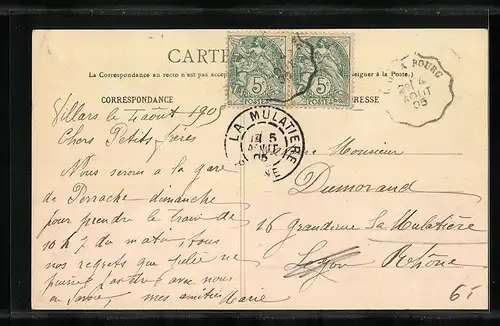 CARTE
(La Correspondance au recto n'est pas accep
seigner à la Poste.)
CORRESPONDANCE
RESSE
5c 5c
POSTES POSTES
A BOURG
AOUT
05
LA MULATIERE
5
AOUT
05
RHONE
Villars le 4 août 1905
Chers Petits frères
Nous serons à la gare
de Perrache dimanche
pour prendre le train de
10 h 7 du matin, tous
nos regrets que Julie ne
puisse partir avec nous
en Savoie, mes amitiés Marie
Monsieur
Dumorand
26 Grande rue La Mulatière
Lyon Rhône
65